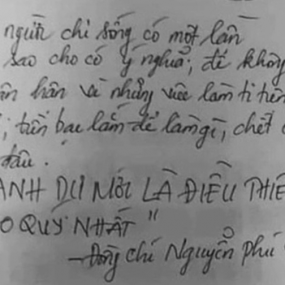 người chỉ sống có một lần
sao cho có ý nghĩa; để không
ân hận vì những việc làm ti tiện
; tiền bạc lắm để làm gì, chết c
đâu.
ANH DỰ MỚI LÀ ĐIỀU THIÊ
O QUÝ NHẤT "
- Đồng chí Nguyễn Phú